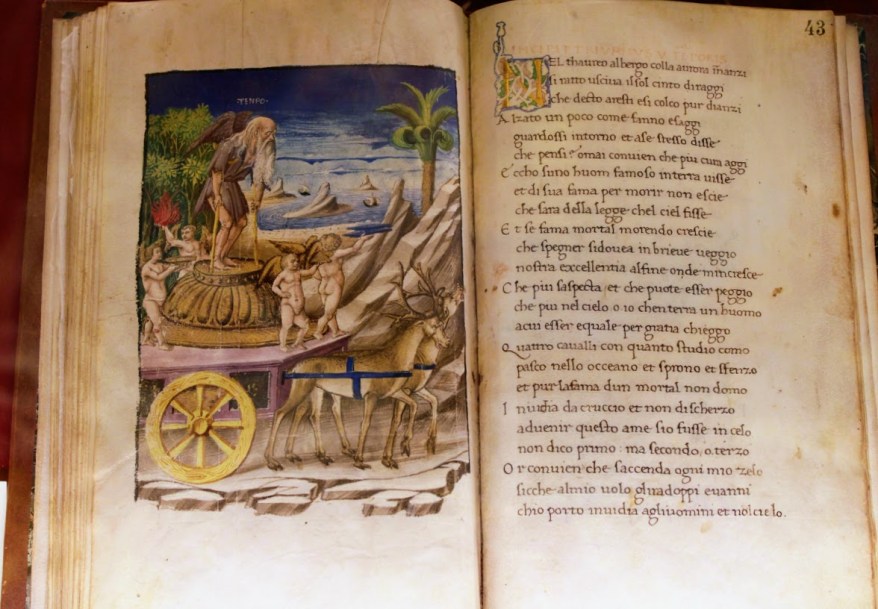 TENPO
43
EL thaureo albergo colla aurora inanzi
si ratto usciua il sol cinto di raggi
che decto aresti esi colco pur dianzi
Alzato un poco come fanno esaggi
guardossi intorno et ase stesso disse
che pensi omai conuien che piu cura aggi
Eccho suno huom famoso interra uisse
et di sua fama per morir non escie
che sara della legge chel ciel fisse
Et se fama mortal morendo crescie
che spegner sidouea in brieue ueggio
nostra excellentia alfine onde mincresce
Che piu saspecta et che puote esser peggio
che piu nel cielo o io chen terra un huomo
acui esser equale per gratia chieggo
Quattro caualli con quanto studio como
pasco nello occeano et sprono et sferzo
et pur lafama dun mortal non domo
Iniudia da cruccio et non discherzo
aduenir questo ame sio fusse in celo
non dico primo ma secondo o terzo
Or conuien che saccenda ogni mio zelo
sicche almio uolo gliradoppi euanni
chio porto inuidia agliuomini et nol cielo.